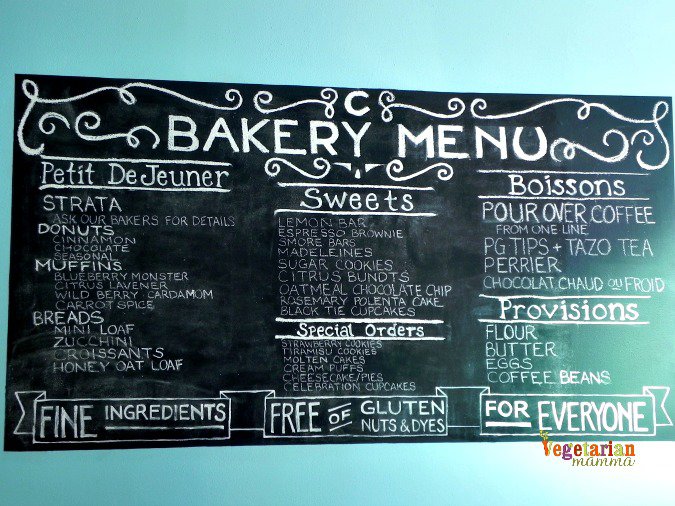 C
BAKERY MENU
Petit DeJeuner
STRATA
ASK OUR BAKERS FOR DETAILS
DONUTS
CINNAMON
CHOCOLATE
SEASONAL
MUFFINS
BLUEBERRY MONSTER
CITRUS LAVENER
WILD BERRY CARDAMOM
CARROT SPICE
BREADS
MINI LOAF
ZUCCHINI
CROISSANTS
HONEY OAT LOAF
Sweets
LEMON BAR
ESPRESSO BROWNIE
SMORE BARS
MADELEINES
SUGAR COOKIES
CITRUS BUNDTS
OATMEAL CHOCOLATE CHIP
ROSEMARY POLENTA CAKE
BLACK TIE CUPCAKES
Special Orders
STRAWBERRY COOKIES
TIRAMISU COOKIES
MOLTEN CAKES
CREAM PUFFS
CHEESECAKE/PIES
CELEBRATION CUPCAKES
Boissons
POUR OVER COFFEE
FROM ONE LINE
PG TIPS + TAZO TEA
PERRIER
CHOCOLAT CHAUD OU FROID
Provisions
FLOUR
BUTTER
EGGS
COFFEE BEANS
FINE INGREDIENTS
FREE OF GLUTEN
NUTS & DYES
FOR EVERYONE
Vegetarian
mamma